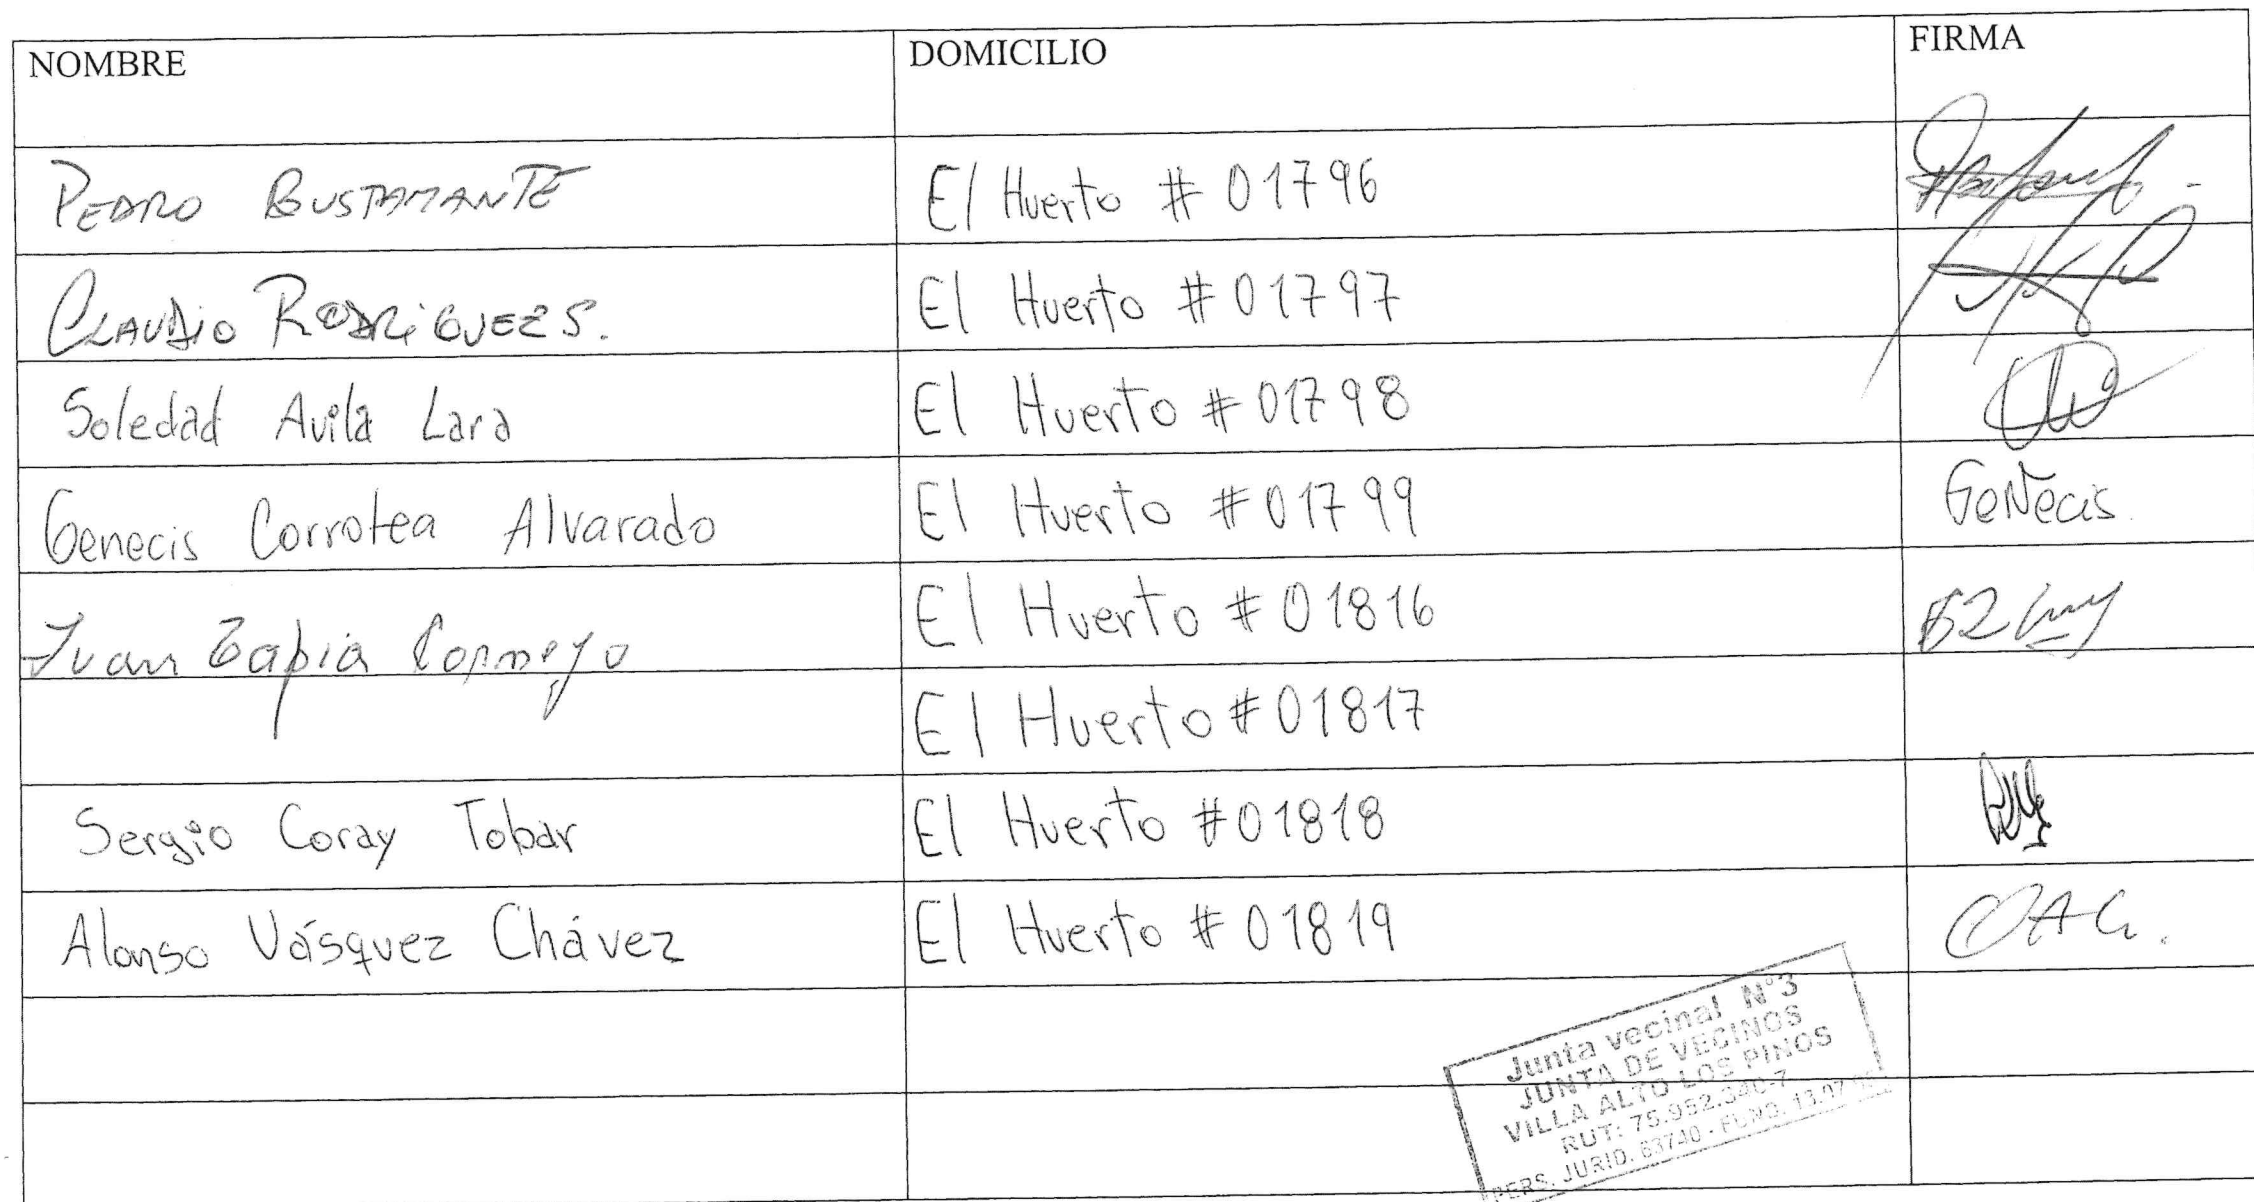 NOMBRE DOMICILIO FIRMA
PEDRO BUSTAMANTE El Huerto # 01796
CLAUDIO RODRIGUEZ S. El Huerto # 01797
Soledad Avila Lara El Huerto # 01798
Genecis Corrotea Alvarado El Huerto # 01799 GeNecis.
Juan Tapia Cornejo El Huerto # 01816
El Huerto # 01817
Sergio Coray Tobar El Huerto # 01818
Alonso Vásquez Chávez El Huerto # 01819
Junta vecinal N°3
JUNTA DE VECINOS
VILLA ALTO LOS PINOS
RUT: 75.952.340-7
PERS. JURID. 63740 - FUND. 13.07